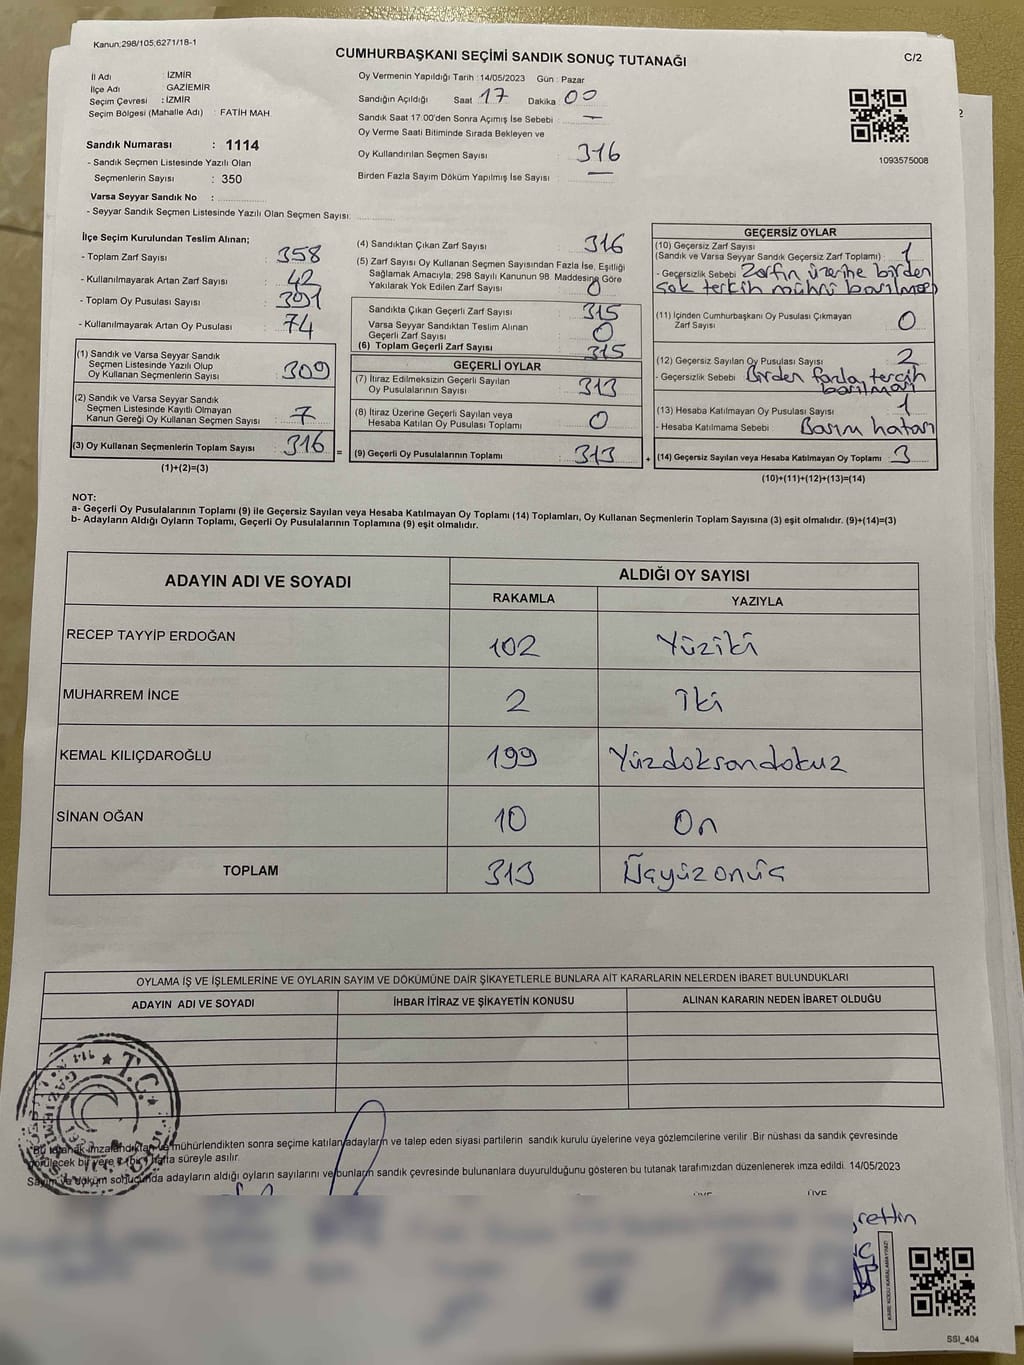 Kanun;298/105,6271/18-1
CUMHURBAŞKANI SEÇİMİ SANDIK SONUÇ TUTANAĞI
C/2
İl Adı : İZMİR
İlçe Adı : GAZİEMİR
Seçim Çevresi : İZMİR
Seçim Bölgesi (Mahalle Adı) : FATİH MAH
Sandık Numarası : 1114
- Sandık Seçmen Listesinde Yazılı Olan
Seçmenlerin Sayısı : 350
Varsa Seyyar Sandık No :
- Seyyar Sandık Seçmen Listesinde Yazılı Olan Seçmen Sayısı:
Oy Vermenin Yapıldığı Tarih : 14/05/2023 Gün : Pazar
Sandığın Açıldığı Saat 17 Dakika 00
Sandık Saat 17.00'den Sonra Açımış İse Sebebi : —
Oy Verme Saati Bitiminde Sırada Bekleyen ve
Oy Kullandırılan Seçmen Sayısı : 316
Birden Fazla Sayım Döküm Yapılmış İse Sayısı : —
1093575008
İlçe Seçim Kurulundan Teslim Alınan;
- Toplam Zarf Sayısı : 358
- Kullanılmayarak Artan Zarf Sayısı : 42
- Toplam Oy Pusulası Sayısı : 391
- Kullanılmayarak Artan Oy Pusulası : 74
(1) Sandık ve Varsa Seyyar Sandık
Seçmen Listesinde Yazılı Olup
Oy Kullanan Seçmenlerin Sayısı : 309
(2) Sandık ve Varsa Seyyar Sandık
Seçmen Listesinde Kayıtlı Olmayan
Kanun Gereği Oy Kullanan Seçmen Sayısı : 7
(3) Oy Kullanan Seçmenlerin Toplam Sayısı : 316
(1)+(2)=(3)
=
(4) Sandıktan Çıkan Zarf Sayısı : 316
(5) Zarf Sayısı Oy Kullanan Seçmen Sayısından Fazla İse, Eşitliği
Sağlamak Amacıyla, 298 Sayılı Kanunun 98. Maddesine Göre
Yakılarak Yok Edilen Zarf Sayısı : 0
Sandıkta Çıkan Geçerli Zarf Sayısı : 315
Varsa Seyyar Sandıktan Teslim Alınan
Geçerli Zarf Sayısı : 0
(6) Toplam Geçerli Zarf Sayısı : 315
GEÇERLİ OYLAR
(7) İtiraz Edilmeksizin Geçerli Sayılan
Oy Pusulalarının Sayısı : 313
(8) İtiraz Üzerine Geçerli Sayılan veya
Hesaba Katılan Oy Pusulası Toplamı : 0
(9) Geçerli Oy Pusulalarının Toplamı : 313
+
GEÇERSİZ OYLAR
(10) Geçersiz Zarf Sayısı
(Sandık ve Varsa Seyyar Sandık Geçersiz Zarf Toplamı) : 1
- Geçersizlik Sebebi Zarfın üzerine birden
çok tercih mührü basılması
(11) İçinden Cumhurbaşkanı Oy Pusulası Çıkmayan
Zarf Sayısı : 0
(12) Geçersiz Sayılan Oy Pusulası Sayısı : 2
- Geçersizlik Sebebi : Birden fazla tercih
basılması
(13) Hesaba Katılmayan Oy Pusulası Sayısı : 1
- Hesaba Katılmama Sebebi : Basım hatası
(14) Geçersiz Sayılan veya Hesaba Katılmayan Oy Toplamı : 3
(10)+(11)+(12)+(13)=(14)
NOT:
a- Geçerli Oy Pusulalarının Toplamı (9) ile Geçersiz Sayılan veya Hesaba Katılmayan Oy Toplamı (14) Toplamları, Oy Kullanan Seçmenlerin Toplam Sayısına (3) eşit olmalıdır. (9)+(14)=(3)
b- Adayların Aldığı Oyların Toplamı, Geçerli Oy Pusulalarının Toplamına (9) eşit olmalıdır.
ADAYIN ADI VE SOYADI
ALDIĞI OY SAYISI
RAKAMLA YAZIYLA
RECEP TAYYİP ERDOĞAN 102 Yüziki
MUHARREM İNCE 2 İki
KEMAL KILIÇDAROĞLU 199 Yüzdoksandokuz
SİNAN OĞAN 10 On
TOPLAM 313 Üçyüzonüç
OYLAMA İŞ VE İŞLEMLERİNE VE OYLARIN SAYIM VE DÖKÜMÜNE DAİR ŞİKAYETLERLE BUNLARA AİT KARARLARIN NELERDEN İBARET BULUNDUKLARI
ADAYIN ADI VE SOYADI İHBAR İTİRAZ VE ŞİKAYETİN KONUSU ALINAN KARARIN NEDEN İBARET OLDUĞU
T.C.
Bu tutanak imzalandıktan ve mühürlendikten sonra seçime katılan adayların ve talep eden siyasi partilerin sandık kurulu üyelerine veya gözlemcilerine verilir. Bir nüshası da sandık çevresinde
görülecek bir yere 1 bir hafta süreyle asılır.
Sayım ve döküm sonucunda adayların aldığı oyların sayılarını ve bunların sandık çevresinde bulunanlara duyurulduğunu gösteren bu tutanak tarafımızdan düzenlenerek imza edildi. 14/05/2023
ÜYE ÜYE
KARE KODU KARALAMAYINIZ!
SSİ_404